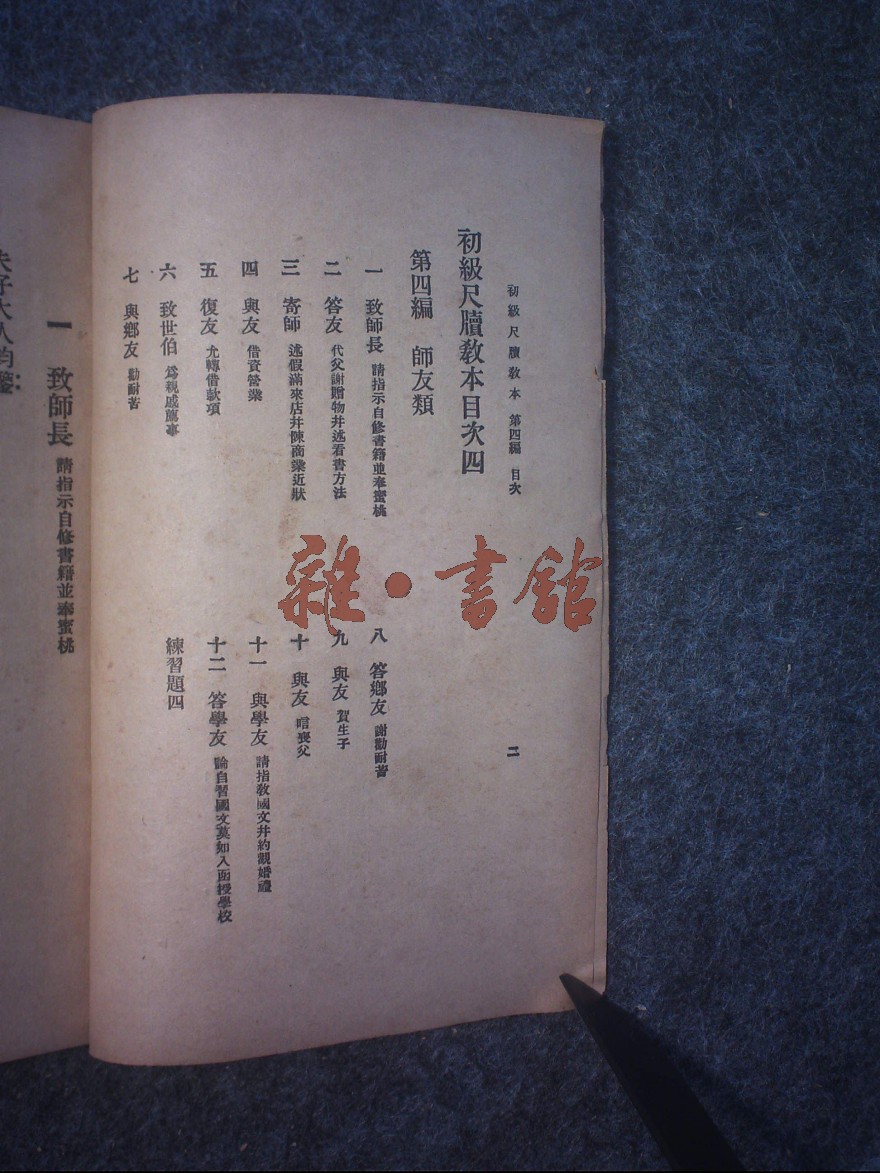 初級尺牘教本 第四編 目次 二
初級尺牘教本目次四
第四編 師友類
一 致師長 請指示自修書籍並奉蜜桃
二 答友 代父謝贈物幷述看書方法
三 寄師 述假滿來店幷陳商業近狀
四 與友 借資營業
五 復友 允轉借款項
六 致世伯 爲親戚薦事
七 與鄉友 勸耐苦
八 答鄉友 謝勸耐苦
九 與友 賀生子
十 與友 唁喪父
十一 與學友 請指敎國文幷約觀婚禮
十二 答學友 論自習國文莫如入函授學校
練習題四
雜·書館
一 致師長 請指示自修書籍並奉蜜桃
夫子大人鈞鑒